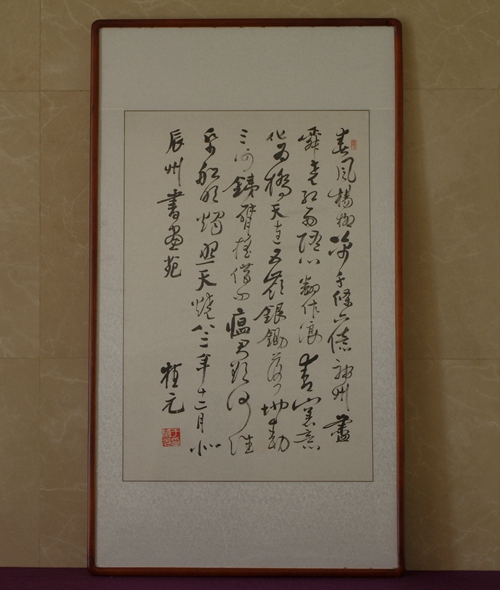 春風楊柳萬千條六億神州盡
舜堯紅雨隨心翻作浪青山著意
化为橋天連五嶺銀鋤落地動
三河鐵臂搖借问瘟君欲何往
紙船明燭照天燒八二年十二月於
辰州書畫苑
植元